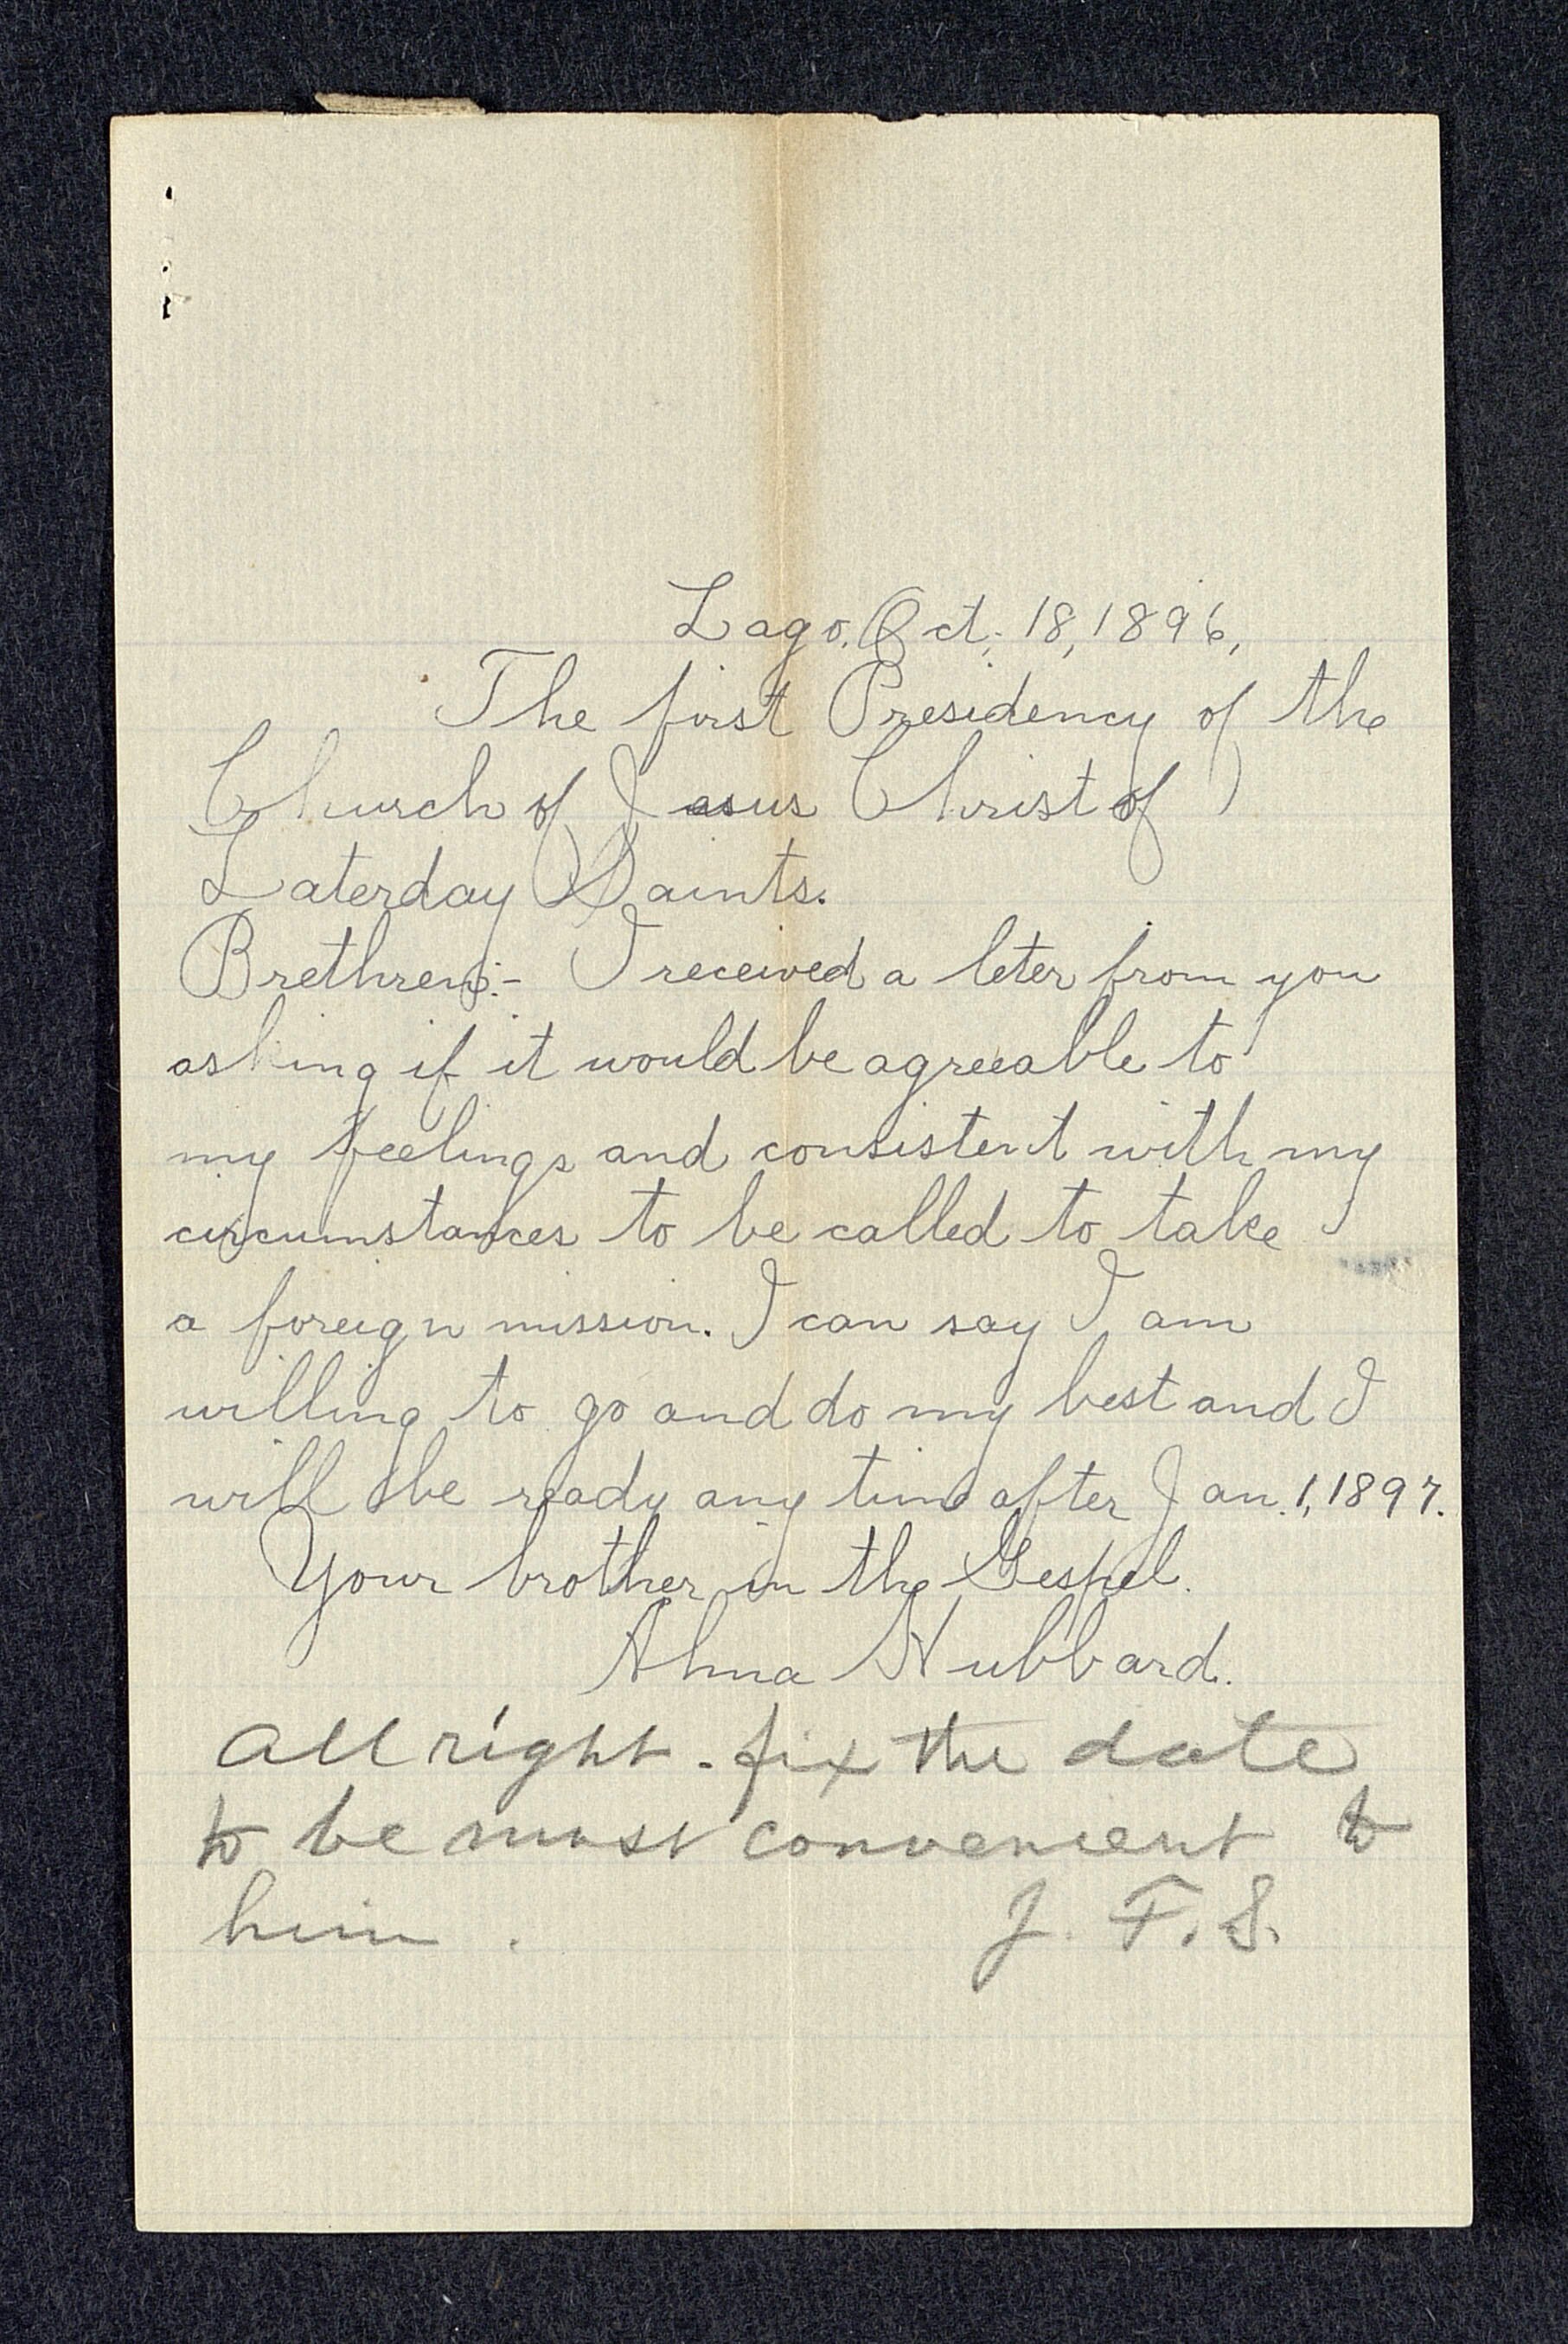 Lago. Oct. 18, 1896,
The first Presidency of the
Church of Jesus Christ of
Laterday Saints.
Brethren:- I received a leter from you
asking if it would be agreeable to
my feelings and consistent with my
circumstances to be called to take
a foreign mission. I can say I am
willing to go and do my best and I
will be ready any time after Jan. 1, 1897.
Your brother in the Gospel.
Alma Hubbard.
All right - fix the date
to be most convenient to
him.
J. F. S.